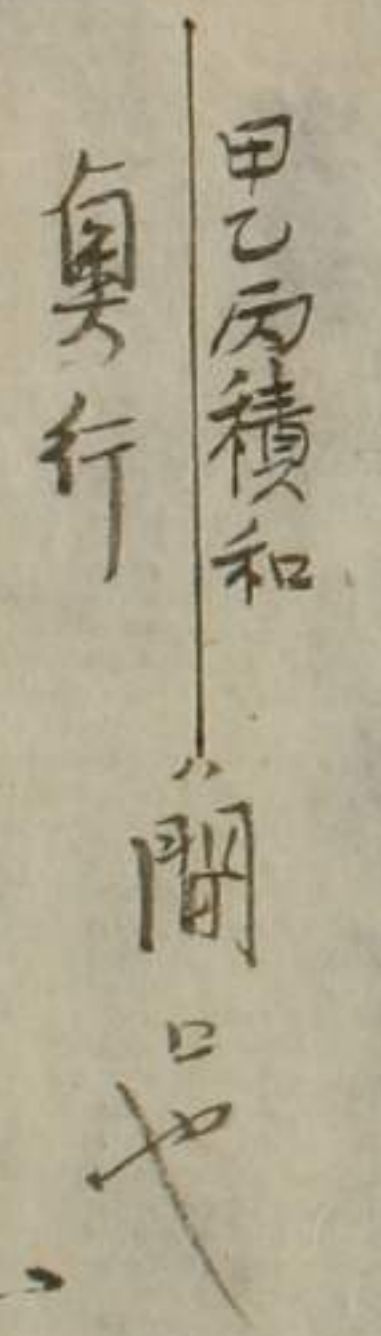 甲乙丙積和
奧行
ハ間口也